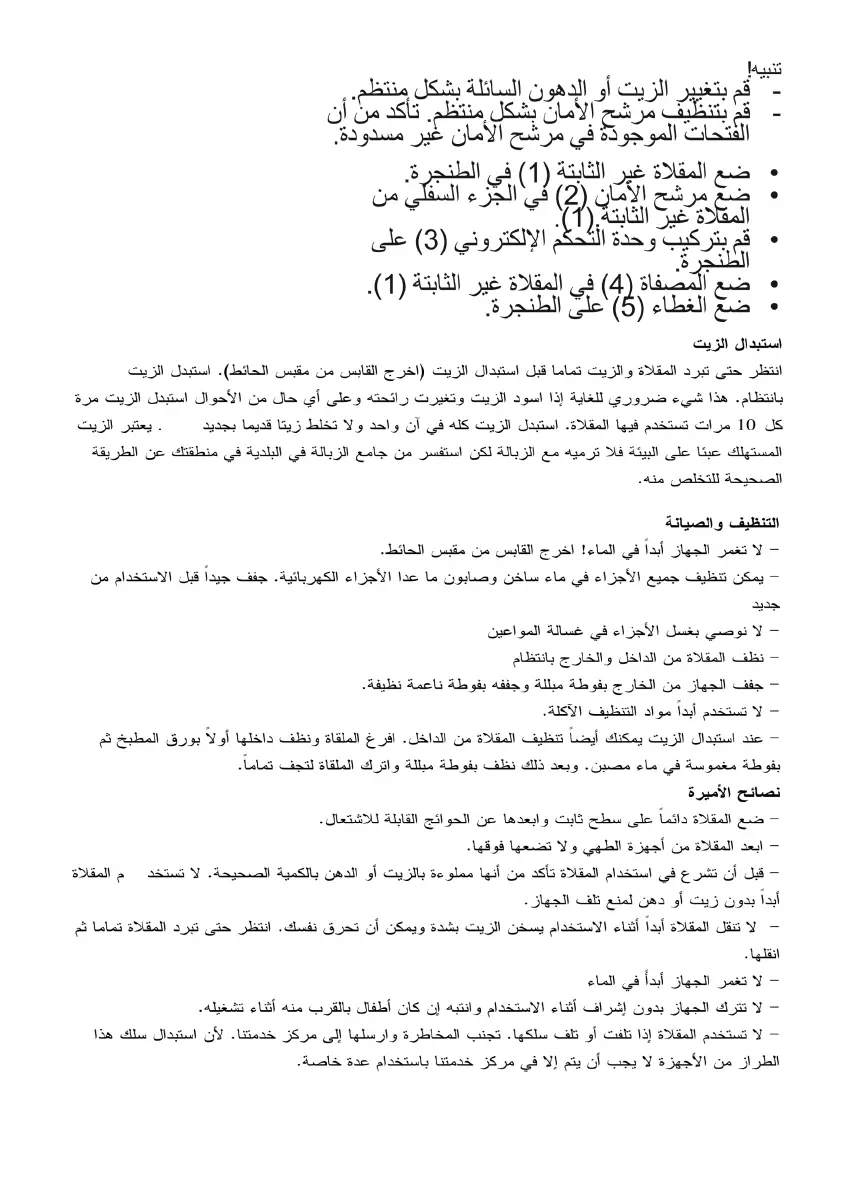 تنبيه!
- قم بتغيير الزيت أو الدهون السائلة بشكل منتظم.
- قم بتنظيف مرشح الأمان بشكل منتظم. تأكد من أن
الفتحات الموجودة في مرشح الأمان غير مسدودة.
• ضع المقلاة غير الثابتة (1) في الطنجرة.
• ضع مرشح الأمان (2) في الجزء السفلي من
المقلاة غير الثابتة (1).
• قم بتركيب وحدة التحكم الإلكتروني (3) على
الطنجرة.
• ضع المصفاة (4) في المقلاة غير الثابتة (1).
• ضع الغطاء (5) على الطنجرة.
استبدال الزيت
انتظر حتى تبرد المقلاة والزيت تماما قبل استبدال الزيت (اخرج القابس من مقبس الحائط). استبدل الزيت
بانتظام. هذا شيء ضروري للغاية إذا اسود الزيت وتغيرت رائحته وعلى أي حال من الأحوال استبدل الزيت مرة
كل 10 مرات تستخدم فيها المقلاة. استبدل الزيت كله في آن واحد ولا تخلط زيتا قديما بجديد . يعتبر الزيت
المستهلك عبئا على البيئة فلا ترميه مع الزبالة لكن استفسر من جامع الزبالة في البلدية في منطقتك عن الطريقة
الصحيحة للتخلص منه.
التنظيف والصيانة
- لا تغمر الجهاز أبداً في الماء! اخرج القابس من مقبس الحائط.
- يمكن تنظيف جميع الأجزاء في ماء ساخن وصابون ما عدا الأجزاء الكهربائية. جفف جيداً قبل الاستخدام من
جديد
- لا نوصي بغسل الأجزاء في غسالة المواعين
- نظف المقلاة من الداخل والخارج بانتظام
- جفف الجهاز من الخارج بفوطة مبللة وجففه بفوطة ناعمة نظيفة.
- لا تستخدم أبداً مواد التنظيف الآكلة.
- عند استبدال الزيت يمكنك أيضاً تنظيف المقلاة من الداخل. افرغ الملقاة ونظف داخلها أولاً بورق المطبخ ثم
بفوطة مغموسة في ماء مصبن. وبعد ذلك نظف بفوطة مبللة واترك الملقاة لتجف تماماً.
نصائح الأميرة
- ضع المقلاة دائماً على سطح ثابت وابعدها عن الحوائج القابلة للاشتعال.
- ابعد المقلاة من أجهزة الطهي ولا تضعها فوقها.
- قبل أن تشرع في استخدام المقلاة تأكد من أنها مملوءة بالزيت أو الدهن بالكمية الصحيحة. لا تستخد م المقلاة
أبداً بدون زيت أو دهن لمنع تلف الجهاز.
- لا تنقل المقلاة أبداً أثناء الاستخدام يسخن الزيت بشدة ويمكن أن تحرق نفسك. انتظر حتى تبرد المقلاة تماما ثم
انقلها.
- لا تغمر الجهاز أبدأً في الماء
- لا تترك الجهاز بدون إشراف أثناء الاستخدام وانتبه إن كان أطفال بالقرب منه أثناء تشغيله.
- لا تستخدم المقلاة إذا تلفت أو تلف سلكها. تجنب المخاطرة وارسلها إلى مركز خدمتنا. لأن استبدال سلك هذا
الطراز من الأجهزة لا يجب أن يتم إلا في مركز خدمتنا باستخدام عدة خاصة.